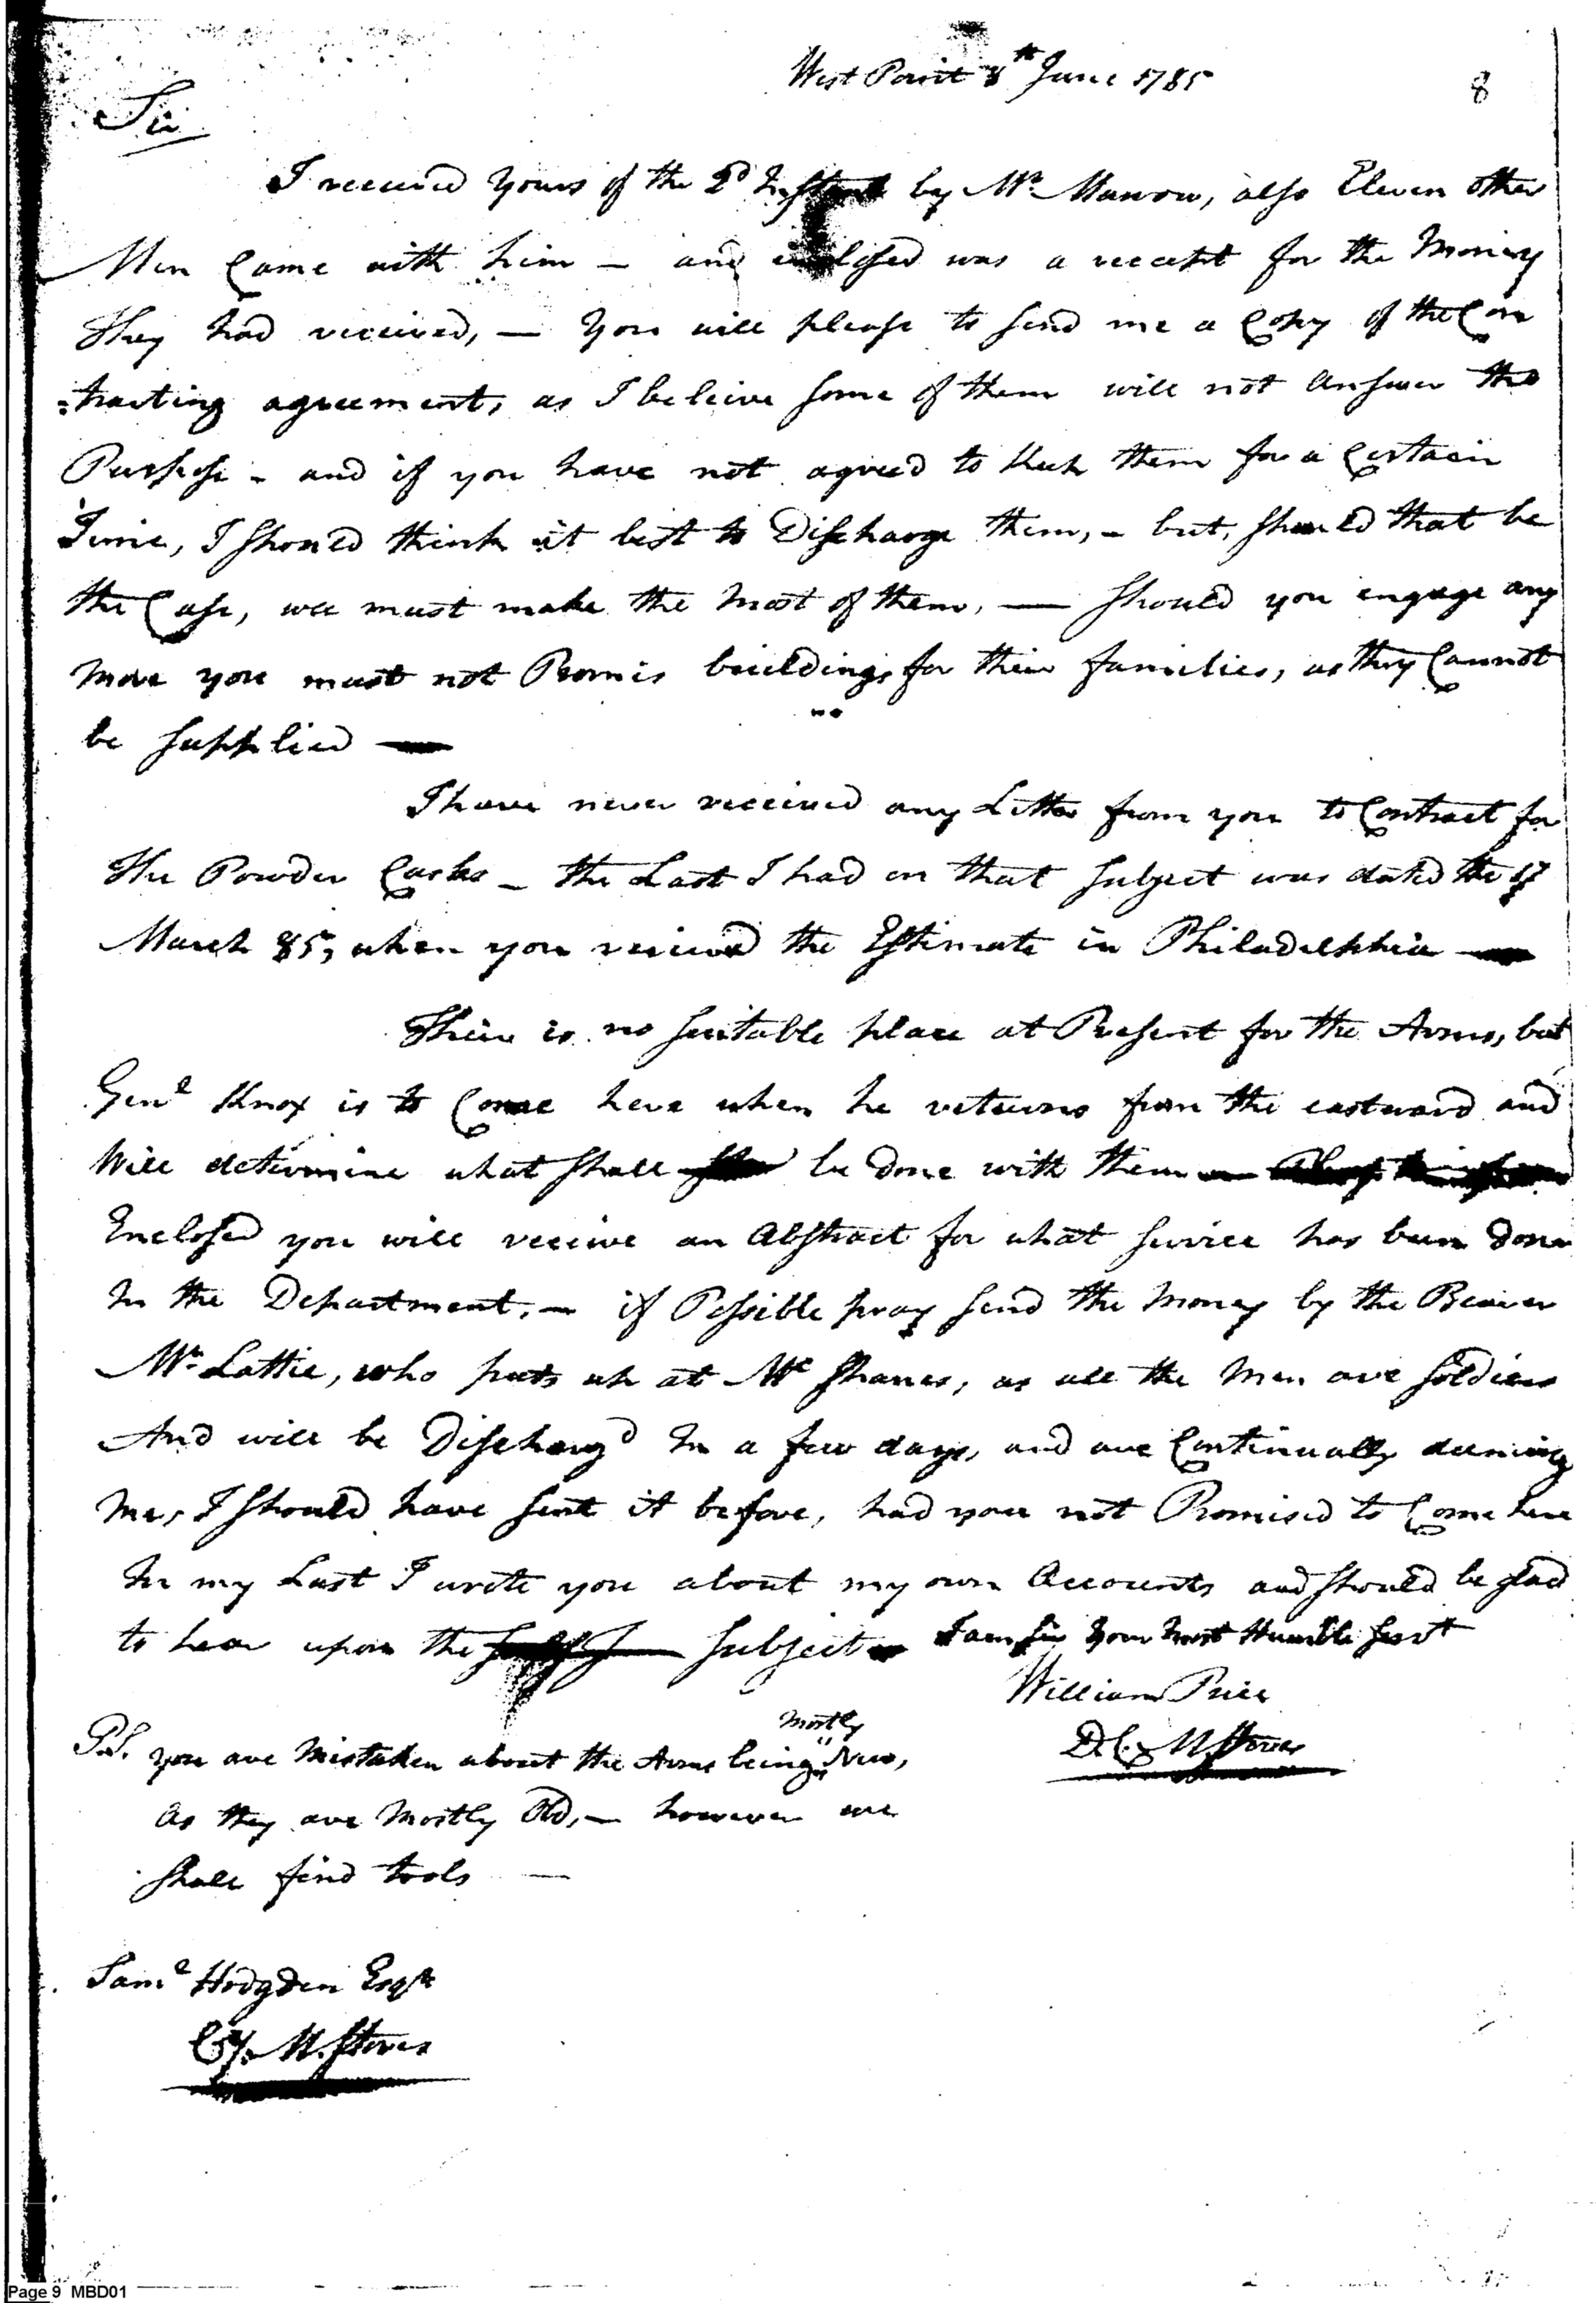 West Point 8th June 1785
8
Sir
I received yours of the 2d Instant by Mr. Marrow, also Eleven other
Men Came with him – and enclosed was a receipt for the Money
They had received, — You will please to send me a Copy of the Con
=tracting agreement, as I beleive some of them will not Answer the
Purpose – and if you have not agreed to keep them for a Certain
Time, I should think it best to Discharge them, – but, should that be
the Case, wee must make the Most of them, — Should you engage any
More you must not Promis buildings for their families, as they Cannot
be supplied —
I have never received any Letter from you to Contract for
The Powder Casks – the Last I had on that subject was dated the 17
March 85, when you reciev'd the Estimate in Philadelphia —
Their is no suitable place at Present for the Arms, but
Genl Knox is to Come here when he returns from the eastward and
Will determine what shall be done with them —
Enclosed you will receive an Abstract for what service has been done
In the Department, – if Possible pray send the Money by the Bearer
Mr. Lattie, who puts up at Mc Shanes, as all the Men are soldiers
And will be Dischargd In a few days, and are Continually duning
Me, I should have sent it before, had you not Promised to Come here
In my Last I wrote you about my own Accounts and should be glad
to hear upon the subject – I am Sir Your Most Humble Servt
William Price
D.C.M. Stores
P.S. you are Mistaken about the Arms being Mostly New,
As they are Mostly Old, – however we
shall find tools —
Saml Hodgden Esqr
Cy. M. Stores
Page 9 MBD01